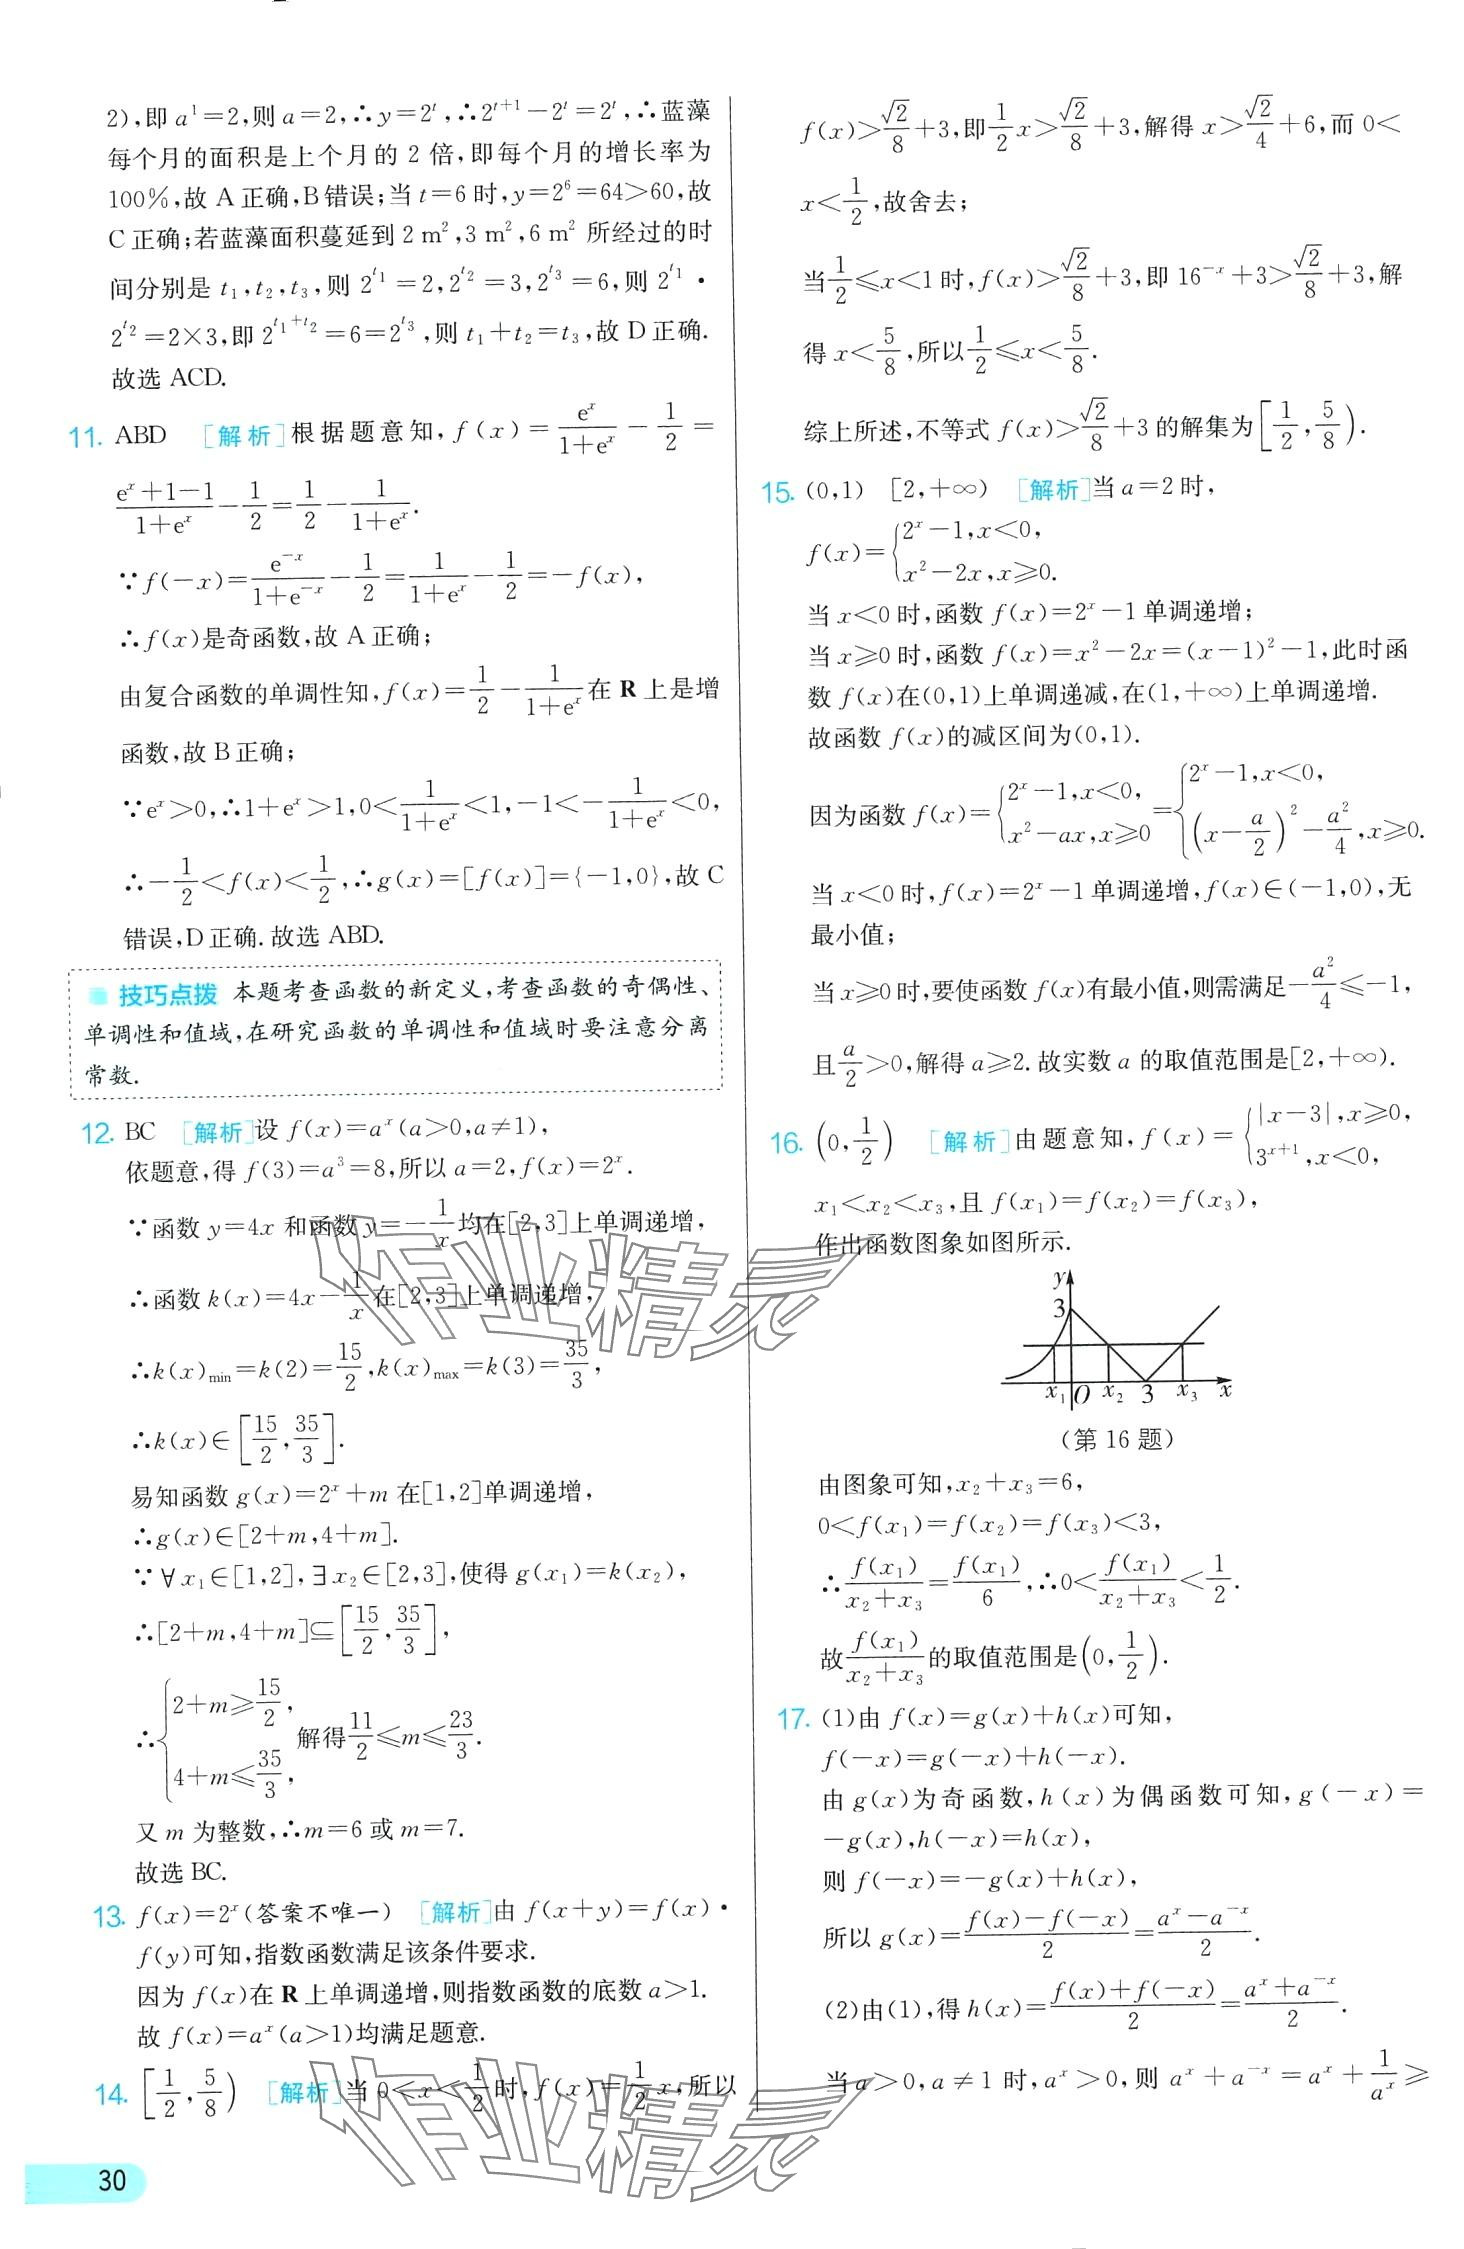 2),即 a¹=2,则 a=2,∴y=2ᵗ,∴2ᵗ⁺¹−2ᵗ=2ᵗ,∴蓝藻
每个月的面积是上个月的 2 倍,即每个月的增长率为
100%,故 A 正确,B 错误;当 t=6 时,y=2⁶=64>60,故
C 正确;若蓝藻面积蔓延到 2 m²,3 m²,6 m² 所经过的时
间分别是 t₁,t₂,t₃,则 2^{t₁}=2,2^{t₂}=3,2^{t₃}=6,则 2^{t₁}·
2^{t₂}=2×3,即 2^{t₁+t₂}=6=2^{t₃},则 t₁+t₂=t₃,故 D 正确.
故选 ACD.
11. ABD [解析]根据题意知,f(x)=eˣ/(1+eˣ)−1/2=
(eˣ+1−1)/(1+eˣ)−1/2=1/2−1/(1+eˣ).
∵f(−x)=e⁻ˣ/(1+e⁻ˣ)−1/2=1/(1+eˣ)−1/2=−f(x),
∴f(x)是奇函数,故 A 正确;
由复合函数的单调性知,f(x)=1/2−1/(1+eˣ)在 R 上是增
函数,故 B 正确;
∵eˣ>0,∴1+eˣ>1,0<1/(1+eˣ)<1,−1<−1/(1+eˣ)<0,
∴−1/2<f(x)<1/2,∴g(x)=[f(x)]={−1,0},故 C
错误,D 正确.故选 ABD.
技巧点拨 本题考查函数的新定义,考查函数的奇偶性、
单调性和值域,在研究函数的单调性和值域时要注意分离
常数.
12. BC [解析]设 f(x)=aˣ(a>0,a≠1),
依题意,得 f(3)=a³=8,所以 a=2,f(x)=2ˣ.
∵函数 y=4x 和函数 y=−1/x 均在[2,3]上单调递增,
∴函数 k(x)=4x−1/x 在[2,3]上单调递增,
∴k(x)min=k(2)=15/2,k(x)max=k(3)=35/3,
∴k(x)∈[15/2,35/3].
易知函数 g(x)=2ˣ+m 在[1,2]单调递增,
∴g(x)∈[2+m,4+m].
∵∀x₁∈[1,2],∃x₂∈[2,3],使得 g(x₁)=k(x₂),
∴[2+m,4+m]⊆[15/2,35/3],
∴{2+m≥15/2, 4+m≤35/3, 解得11/2≤m≤23/3.
又 m 为整数,∴m=6 或 m=7.
故选 BC.
13. f(x)=2ˣ(答案不唯一) [解析]由 f(x+y)=f(x)·
f(y)可知,指数函数满足该条件要求.
因为 f(x)在 R 上单调递增,则指数函数的底数 a>1.
故 f(x)=aˣ(a>1)均满足题意.
14. [1/2,5/8) [解析]当 0<x<1/2 时,f(x)=1/2x,所以
30
f(x)>√2/8+3,即1/2x>√2/8+3,解得 x>√2/4+6,而 0<
x<1/2,故舍去;
当1/2≤x<1 时,f(x)>√2/8+3,即 16⁻ˣ+3>√2/8+3,解
得 x<5/8,所以1/2≤x<5/8.
综上所述,不等式 f(x)>√2/8+3 的解集为[1/2,5/8).
15. (0,1) [2,+∞) [解析]当 a=2 时,
f(x)={2ˣ−1,x<0, x²−2x,x≥0.
当 x<0 时,函数 f(x)=2ˣ−1 单调递增;
当 x≥0 时,函数 f(x)=x²−2x=(x−1)²−1,此时函
数 f(x)在(0,1)上单调递减,在(1,+∞)上单调递增.
故函数 f(x)的减区间为(0,1).
因为函数 f(x)={2ˣ−1,x<0, x²−ax,x≥0 ={2ˣ−1,x<0, (x−a/2)²−a²/4,x≥0.
当 x<0 时,f(x)=2ˣ−1 单调递增,f(x)∈(−1,0),无
最小值;
当 x≥0 时,要使函数 f(x)有最小值,则需满足−a²/4≤−1,
且a/2>0,解得 a≥2.故实数 a 的取值范围是[2,+∞).
16. (0,1/2) [解析]由题意知,f(x)={|x−3|,x≥0, 3ˣ⁺¹,x<0,
x₁<x₂<x₃,且 f(x₁)=f(x₂)=f(x₃),
作出函数图象如图所示.
y
3
x₁ O x₂ 3 x₃ x
(第 16 题)
由图象可知,x₂+x₃=6,
0<f(x₁)=f(x₂)=f(x₃)<3,
∴f(x₁)/(x₂+x₃)=f(x₁)/6,∴0<f(x₁)/(x₂+x₃)<1/2.
故f(x₁)/(x₂+x₃)的取值范围是(0,1/2).
17. (1)由 f(x)=g(x)+h(x)可知,
f(−x)=g(−x)+h(−x).
由 g(x)为奇函数,h(x)为偶函数可知,g(−x)=
−g(x),h(−x)=h(x),
则 f(−x)=−g(x)+h(x),
所以 g(x)=(f(x)−f(−x))/2=(aˣ−a⁻ˣ)/2.
(2)由(1),得 h(x)=(f(x)+f(−x))/2=(aˣ+a⁻ˣ)/2.
当 a>0,a≠1 时,aˣ>0,则 aˣ+a⁻ˣ=aˣ+1/aˣ≥
作业精灵
作业精灵